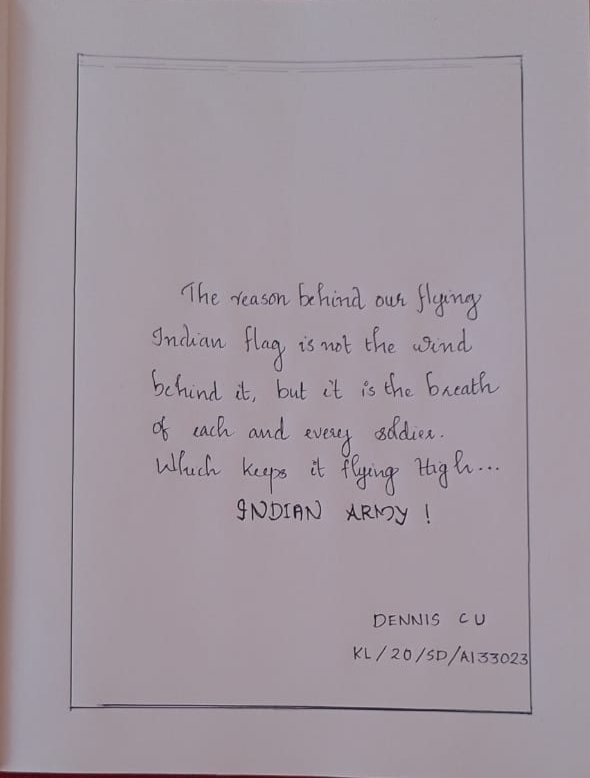 The reason behind our flying
Indian flag is not the wind
behind it, but it is the breath
of each and every soldier.
Which keeps it flying High...
INDIAN ARMY !
DENNIS C U
KL/20/SD/A133023